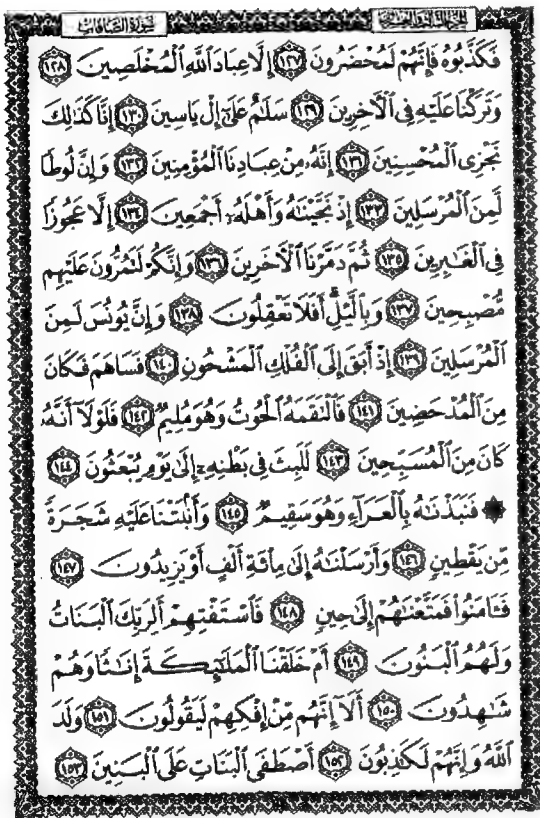 الجزء الثالث والعشرون سورة الصافات
فَكَذَّبُوهُ فَإِنَّهُمْ لَمُحْضَرُونَ ﴿١٢٧﴾ إِلَّا عِبَادَ ٱللَّهِ ٱلْمُخْلَصِينَ ﴿١٢٨﴾
وَتَرَكْنَا عَلَيْهِ فِي ٱلْآخِرِينَ ﴿١٢٩﴾ سَلَٰمٌ عَلَىٰٓ إِلْ يَاسِينَ ﴿١٣٠﴾ إِنَّا كَذَٰلِكَ
نَجْزِي ٱلْمُحْسِنِينَ ﴿١٣١﴾ إِنَّهُۥ مِنْ عِبَادِنَا ٱلْمُؤْمِنِينَ ﴿١٣٢﴾ وَإِنَّ لُوطًا
لَّمِنَ ٱلْمُرْسَلِينَ ﴿١٣٣﴾ إِذْ نَجَّيْنَٰهُ وَأَهْلَهُۥٓ أَجْمَعِينَ ﴿١٣٤﴾ إِلَّا عَجُوزًا
فِي ٱلْغَٰبِرِينَ ﴿١٣٥﴾ ثُمَّ دَمَّرْنَا ٱلْآخَرِينَ ﴿١٣٦﴾ وَإِنَّكُمْ لَتَمُرُّونَ عَلَيْهِم
مُّصْبِحِينَ ﴿١٣٧﴾ وَبِٱلَّيْلِ ۗ أَفَلَا تَعْقِلُونَ ﴿١٣٨﴾ وَإِنَّ يُونُسَ لَمِنَ
ٱلْمُرْسَلِينَ ﴿١٣٩﴾ إِذْ أَبَقَ إِلَى ٱلْفُلْكِ ٱلْمَشْحُونِ ﴿١٤٠﴾ فَسَاهَمَ فَكَانَ
مِنَ ٱلْمُدْحَضِينَ ﴿١٤١﴾ فَٱلْتَقَمَهُ ٱلْحُوتُ وَهُوَ مُلِيمٌ ﴿١٤٢﴾ فَلَوْلَآ أَنَّهُۥ
كَانَ مِنَ ٱلْمُسَبِّحِينَ ﴿١٤٣﴾ لَلَبِثَ فِي بَطْنِهِۦٓ إِلَىٰ يَوْمِ يُبْعَثُونَ ﴿١٤٤﴾
۞ فَنَبَذْنَٰهُ بِٱلْعَرَآءِ وَهُوَ سَقِيمٌ ﴿١٤٥﴾ وَأَنۢبَتْنَا عَلَيْهِ شَجَرَةً
مِّن يَقْطِينٍ ﴿١٤٦﴾ وَأَرْسَلْنَٰهُ إِلَىٰ مِا۟ئَةِ أَلْفٍ أَوْ يَزِيدُونَ ﴿١٤٧﴾
فَـَٔامَنُوا۟ فَمَتَّعْنَٰهُمْ إِلَىٰ حِينٍ ﴿١٤٨﴾ فَٱسْتَفْتِهِمْ أَلِرَبِّكَ ٱلْبَنَاتُ
وَلَهُمُ ٱلْبَنُونَ ﴿١٤٩﴾ أَمْ خَلَقْنَا ٱلْمَلَٰٓئِكَةَ إِنَٰثًا وَهُمْ
شَٰهِدُونَ ﴿١٥٠﴾ أَلَآ إِنَّهُم مِّنْ إِفْكِهِمْ لَيَقُولُونَ ﴿١٥١﴾ وَلَدَ
ٱللَّهُ وَإِنَّهُمْ لَكَٰذِبُونَ ﴿١٥٢﴾ أَصْطَفَى ٱلْبَنَاتِ عَلَى ٱلْبَنِينَ ﴿١٥٣﴾